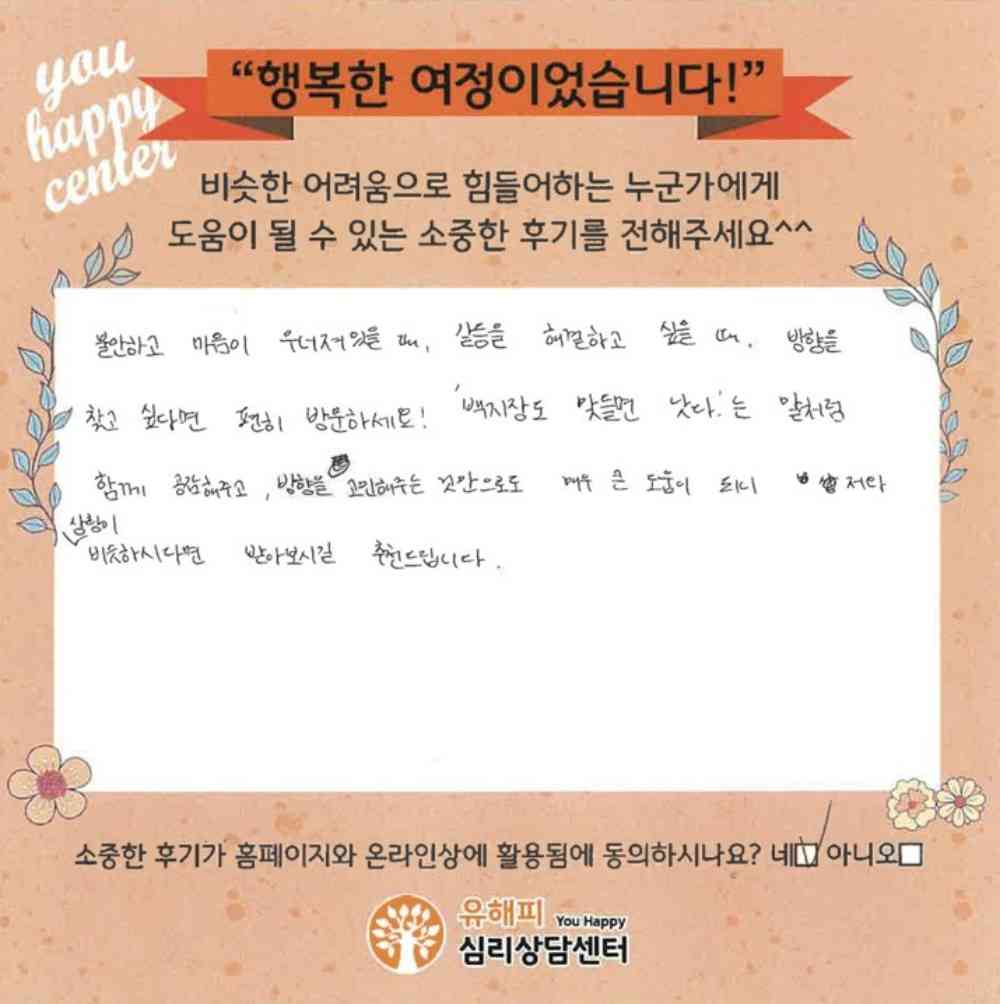 you
happy
center
“행복한 여정이었습니다!”
비슷한 어려움으로 힘들어하는 누군가에게
도움이 될 수 있는 소중한 후기를 전해주세요^^
불안하고 마음이 우너져있을 때, 갈등을 해결하고 싶을 때, 방향을
찾고 싶다면 편히 방문하세요! '백지장도 맞들면 낫다.'는 말처럼
함께 공감해주고, 방향을 고민해주는 것만으로도 매우 큰 도움이 되니 저와
상황이
비슷하시다면 받아보시길 추천드립니다.
소중한 후기가 홈페이지와 온라인상에 활용됨에 동의하시나요? 네☑ 아니오☐
유해피 You Happy
심리상담센터